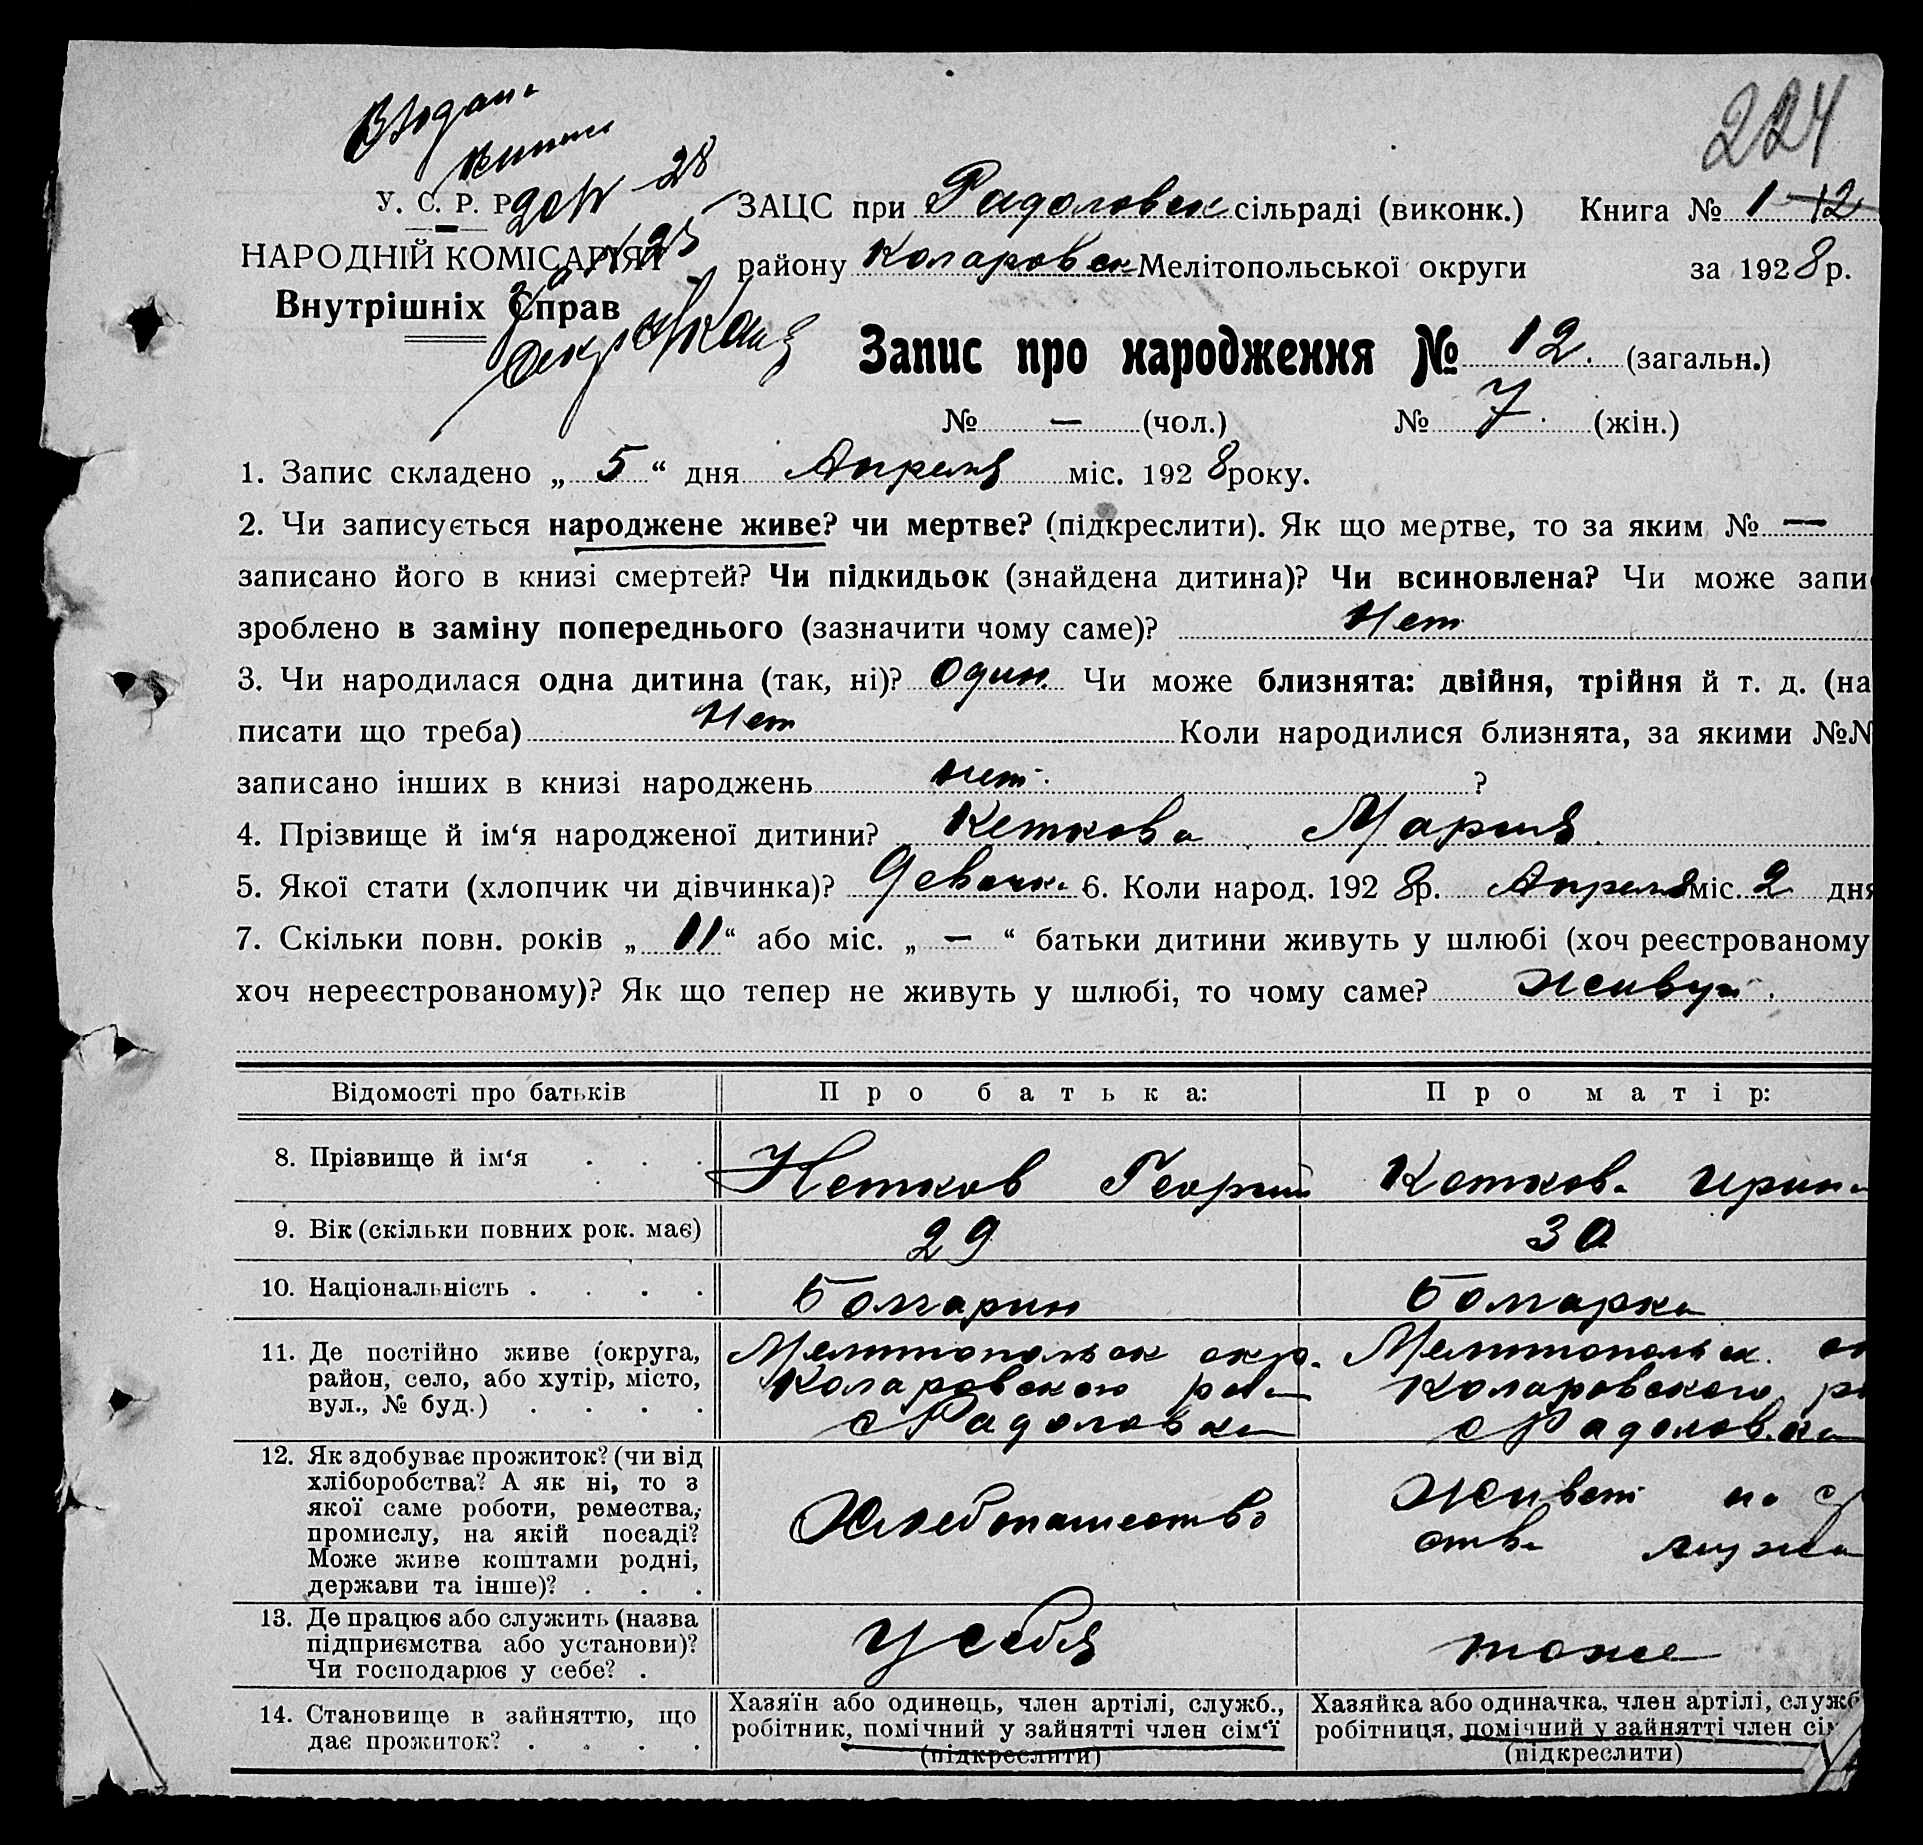 224
28
У. С. Р. Р.
ЗАЦС при Радоловск сільраді (виконк.) Книга № 1 12
НАРОДНІЙ КОМІСАРІЯТ
району Коларовск Мелітопольської округи за 1928 р.
Внутрішніх Справ
Запис про народження № 12. (загальн.)
№ — (чол.) № 7 (жін.)
1. Запис складено „ 5 “ дня Апреля міс. 1928 року.
2. Чи записується народжене живе? чи мертве? (підкреслити). Як що мертве, то за яким № —
записано його в книзі смертей? Чи підкидьок (знайдена дитина)? Чи всиновлена? Чи може запи
зроблено в заміну попереднього (зазначити чому саме)? Нет
3. Чи народилася одна дитина (так, ні)? Один. Чи може близнята: двійня, трійня й т. д. (на
писати що треба) Нет Коли народилися близнята, за якими №№
записано інших в книзі народжень нет ?
4. Прізвище й ім‘я народженої дитини? Кеткова Мария
5. Якої стати (хлопчик чи дівчинка)? Девочк. 6. Коли народ. 1928 р. Апреля міс. 2 дня
7. Скільки повн. років „ 11 “ або міс. „ — “ батьки дитини живуть у шлюбі (хоч реєстрованому
хоч нереєстрованому)? Як що тепер не живуть у шлюбі, то чому саме? живут.
Відомості про батьків Про батька: Про матір:
8. Прізвище й ім‘я . . . Кетков Георгий Кеткова Ирина
9. Вік (скільки повних рок. має) 29 30
10. Національність . . . . Болгарин Болгарка
11. Де постійно живе (округа, Мелитопольск окр. Мелитопольск.
район, село, або хутір, місто, Коларовского рай Коларовского р
вул., № буд.) . . . . с Радоловка с Радоловка
12. Як здобуває прожиток? (чи від
хліборобства? А як ні, то з
якої саме роботи, ремества, Хлебопашество Живет на ср
промислу, на якій посаді? ства мужа
Може живе коштами родні,
держави та інше)? . . .
13. Де працює або служить (назва
підприємства або установи)? У себя тоже
Чи господарює у себе? .
14. Становище в зайняттю, що Хазяїн або одинець, член артілі, служб., Хазяйка або одиначка, член артілі, служб
дає прожиток? . . . . робітник, помічний у зайнятті член сім‘ї робітниця, помічний у зайнятті член сім
(підкреслити) (підкреслити)